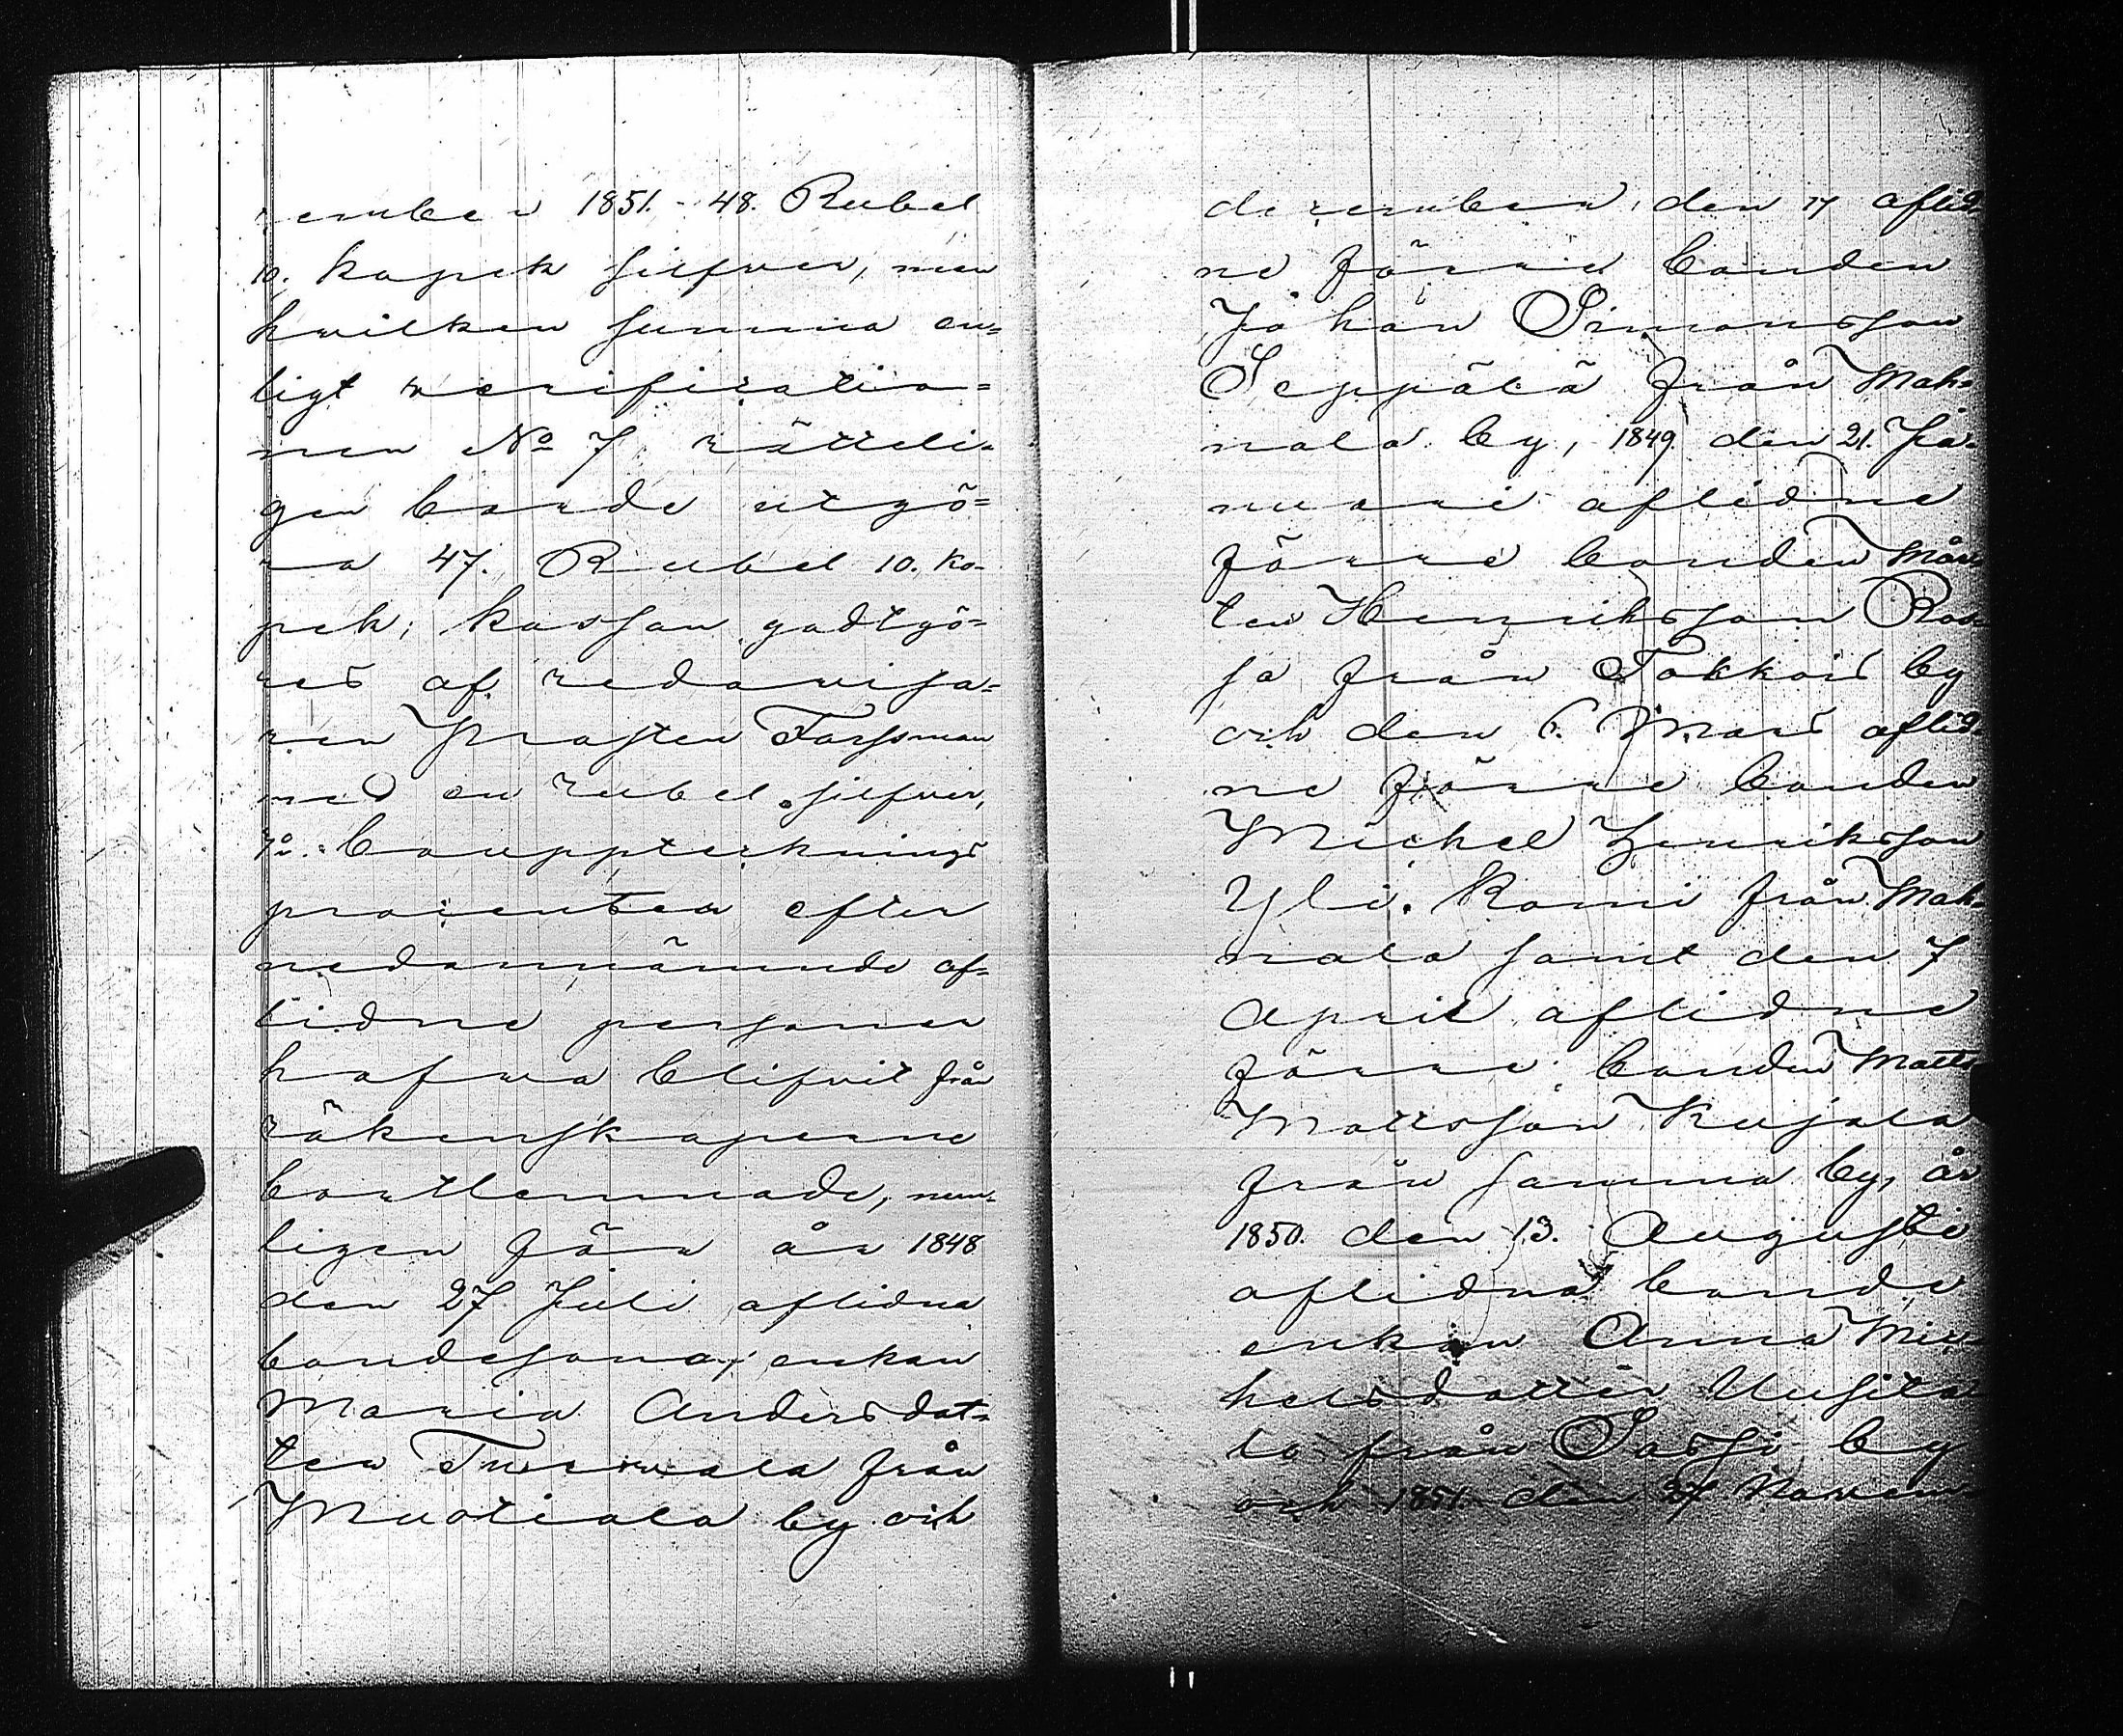 vember 1851. - 48. Rubel
10. kopek silfver, men
hvilken summa en=
ligt verificatio=
nen No 7 rätteli=
gen borde utgö=
ra 47. Rubel 10. ko-
pek; kassan godtgö=
res af redovisa=
ren Prosten Forssman
med en rubel silfver,
7o. Bouppteknings
procenten efter
nedannämnde af=
lidne personer
hafva blifvit från
räkenskaperne
bortlemnade, nem-
ligen för år 1848
den 27 Juli aflidna
bondesona enkan
Maria Andersdot=
ter Turvala från
Muotiala by och
december, den 17 aflid-
ne förre bonden
Johan Simonsson
Seppälä från Mah-
nala by, 1849 den 21. Ja-
nuari aflidne
förre bonden Mår
ten Henriksson Roo
sa från Tokkois by
och den 6. Mars aflid-
ne förre bonden
Michel Henriksson
Yli. Romi från Mah-
nala samt den 7
April aflidne
förre bonden Matts
Mattsson Kujala
från samma by, år
1850. den 13. Augusti
aflidna bonde
enkan Anna Mic-
helsdotter Uusita
lo från Sassi by
och 1851 den 27 Novem-